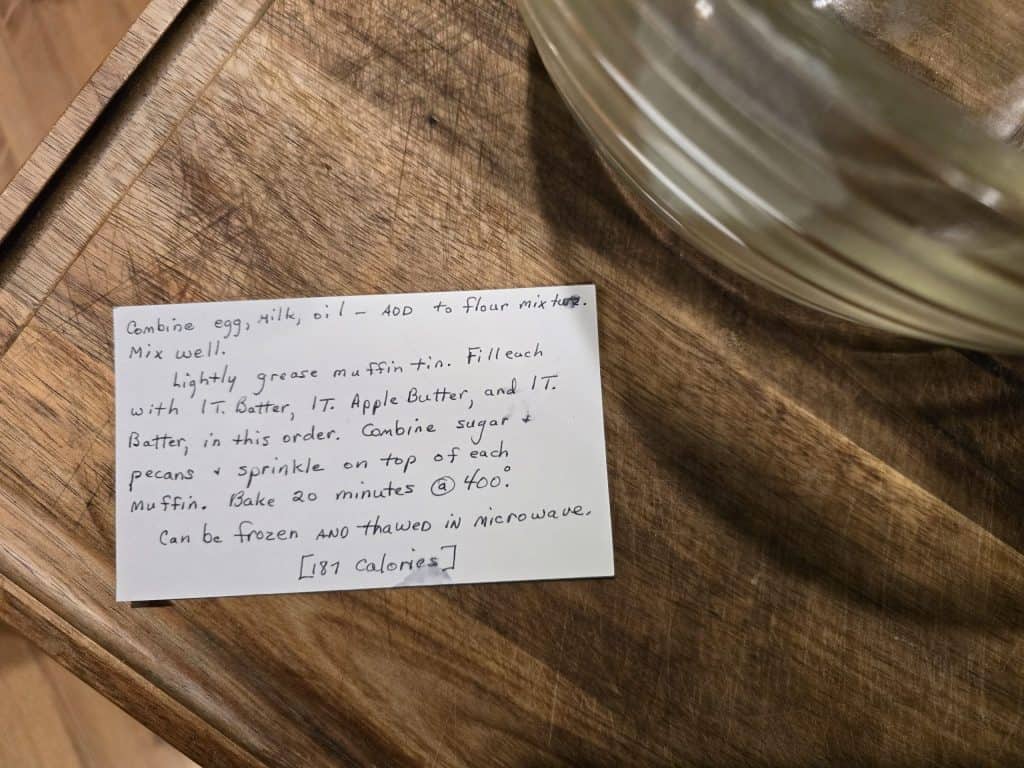 Combine egg, milk, oil – ADD to flour mixture.
Mix well.
Lightly grease muffin tin. Fill each
with 1T. Batter, 1T. Apple Butter, and 1T.
Batter, in this order. Combine sugar +
pecans + sprinkle on top of each
muffin. Bake 20 minutes @ 400°.
Can be frozen AND thawed in microwave.
[187 Calories]